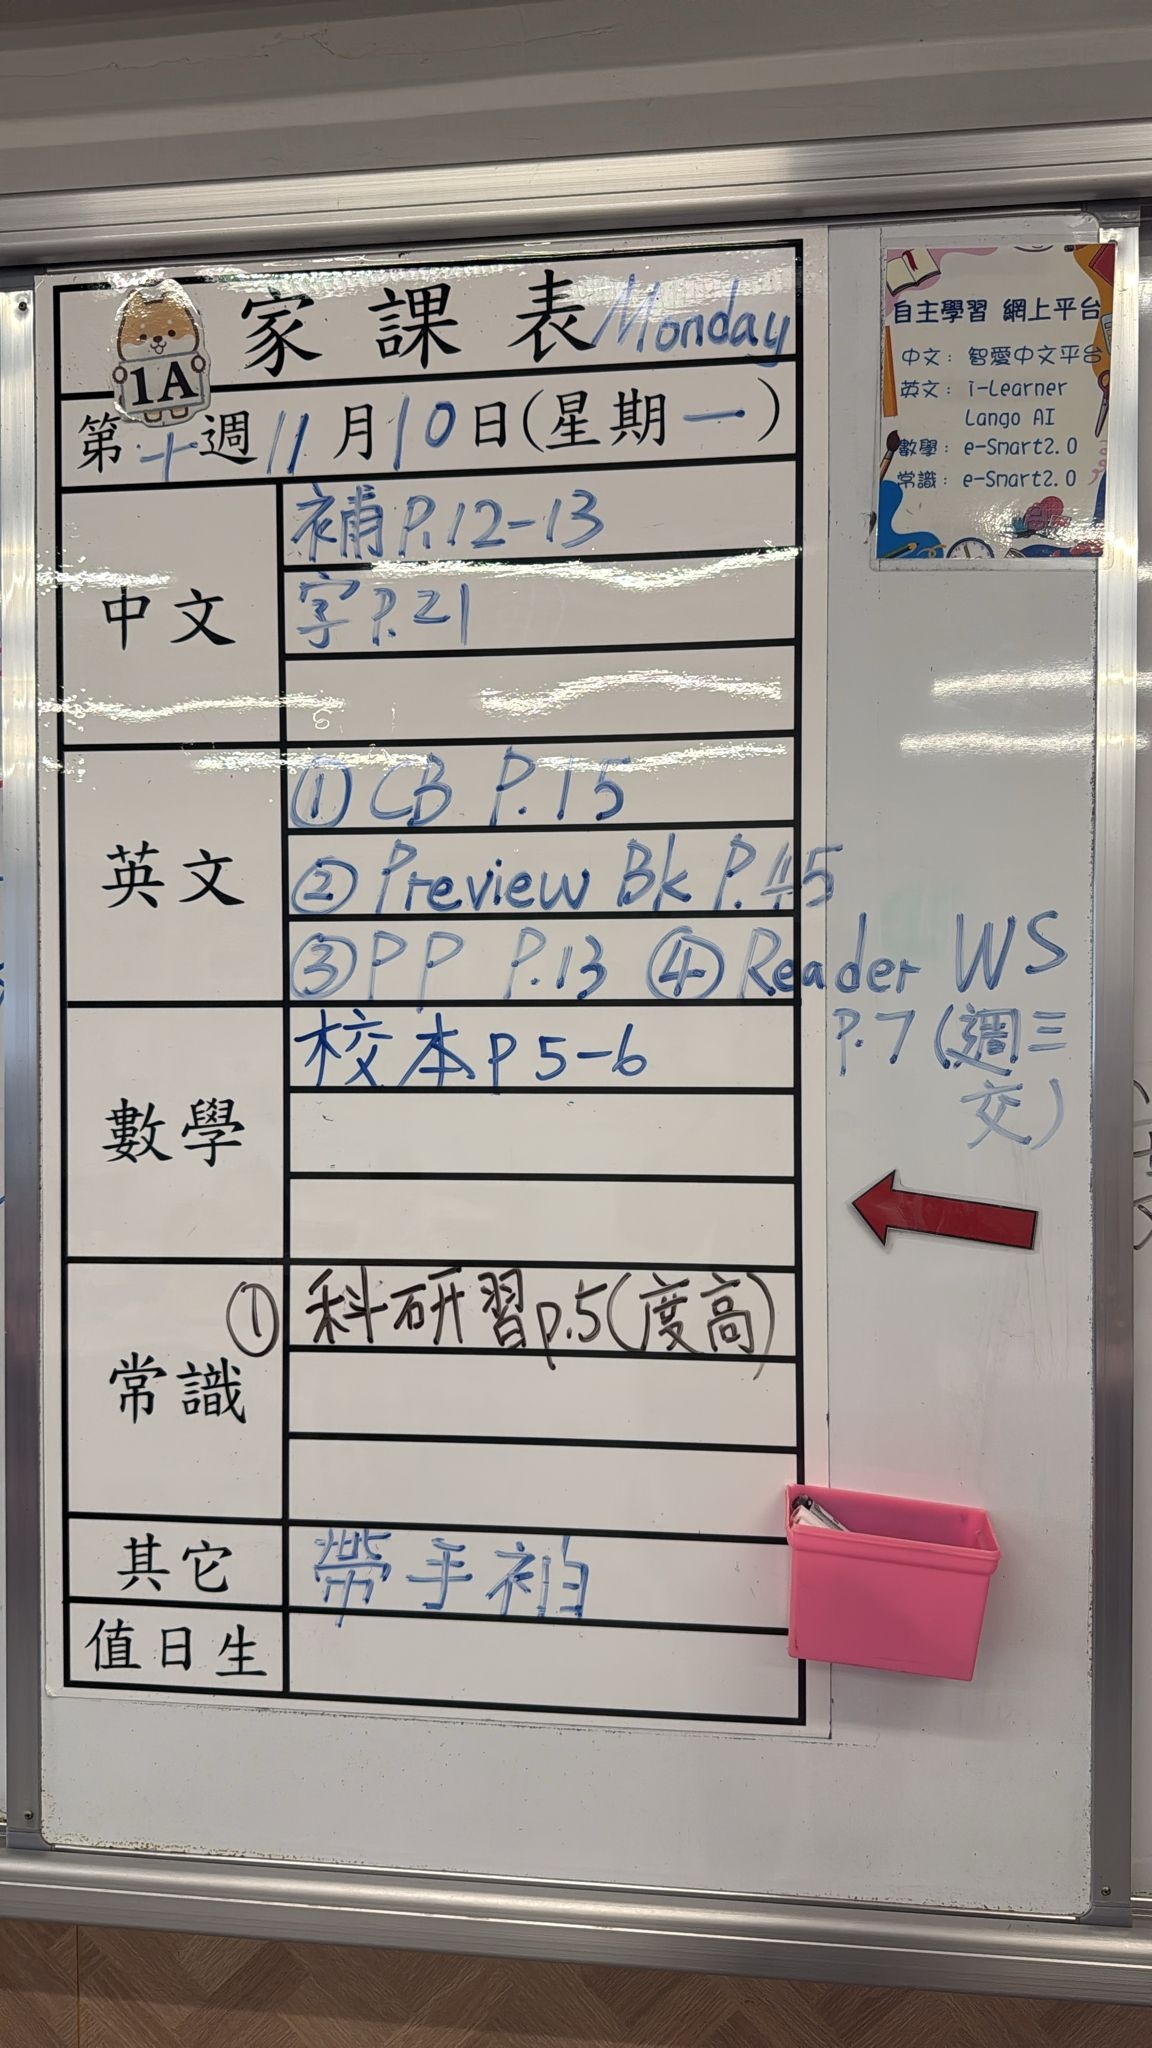 家課表 Monday
1A
第十週 11月10日(星期一)
中文
補P.12-13
字P.21
英文
① CB P.15
② Preview Bk P.45
③ PP P.13 ④ Reader WS
P.7 (週三
交)
數學
校本P5-6
常識
① 科研習p.5(度高)
其它
帶手袖
值日生
自主學習 網上平台
中文: 智愛中文平台
英文: i-Learner
Lango AI
數學: e-Smart2.0
常識: e-Smart2.0